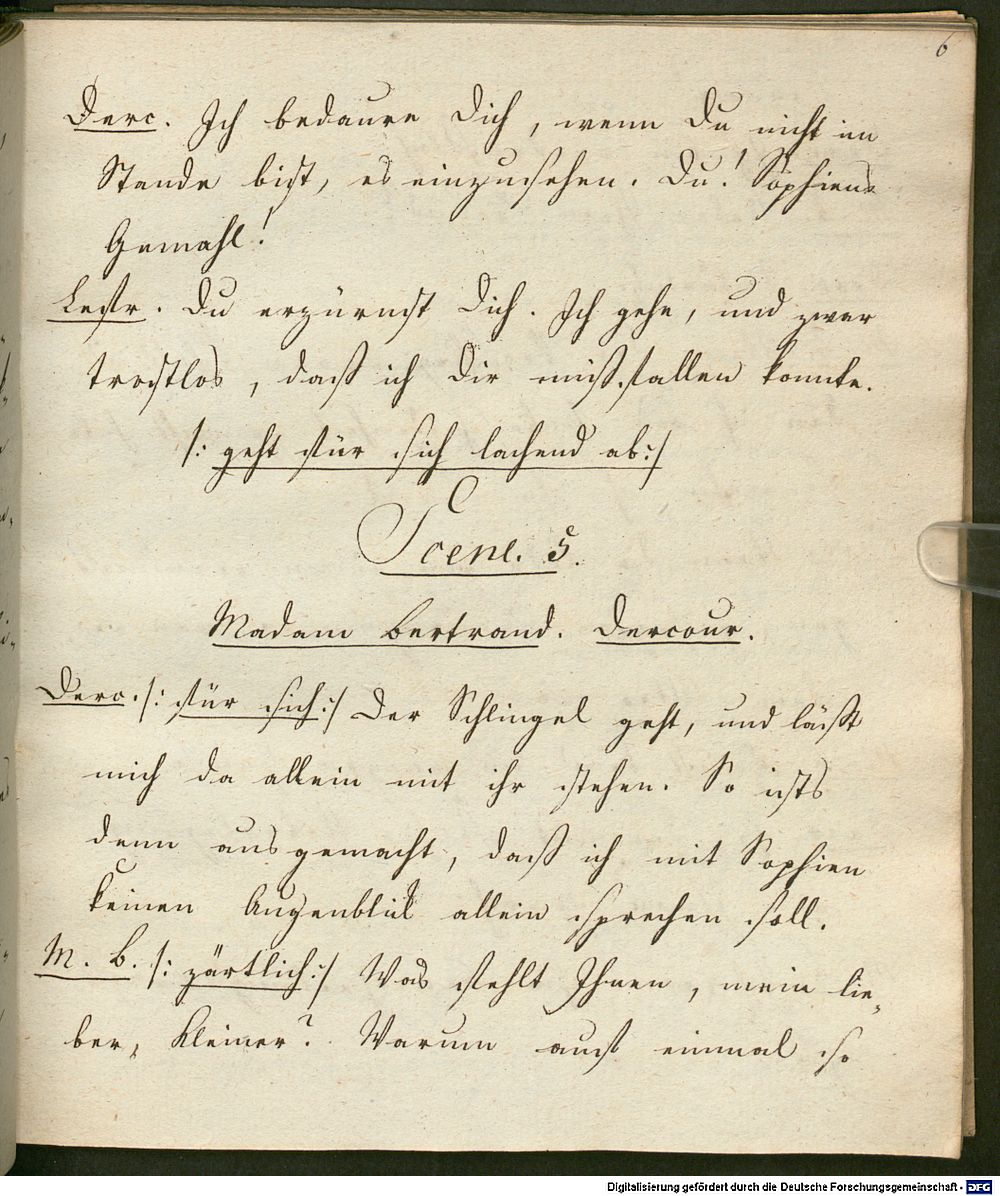 6
Derc. Ich bedaure Dich, wenn Du nicht im
Stande bist, es einzusehen. Du! Sophiens
Gemahl!
Lestr. Du erzürnst Dich. Ich gehe, und zwar
trostlos, daß ich Dir mißfallen konnte.
/: geht für sich lachend ab :/
Scene. 5.
Madam Bertrand. Dercour.
Derc. /: für sich :/ Der Schlingel geht, und läßt
mich da allein mit ihr stehen. So ists
denn ausgemacht, daß ich mit Sophien
keinen Augenblik allein sprechen soll.
M. B. /: zärtlich :/ Was fehlt Ihnen, mein lie„
ber, Kleiner? Warum auf einmal so
Digitalisierung gefördert durch die Deutsche Forschungsgemeinschaft - DFG